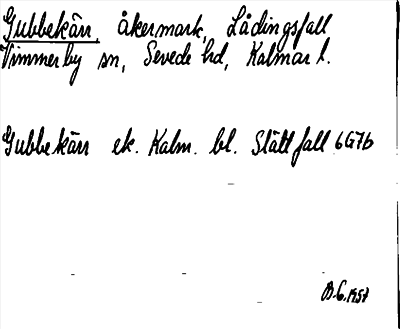 Gubbekärr, åkermark, Lådingsfall
Vimmerby sn, Sevede hd, Kalmar l.
Gubbekärr ek. Kalm. bl. Slättfall 6G7b
B.G. 1957